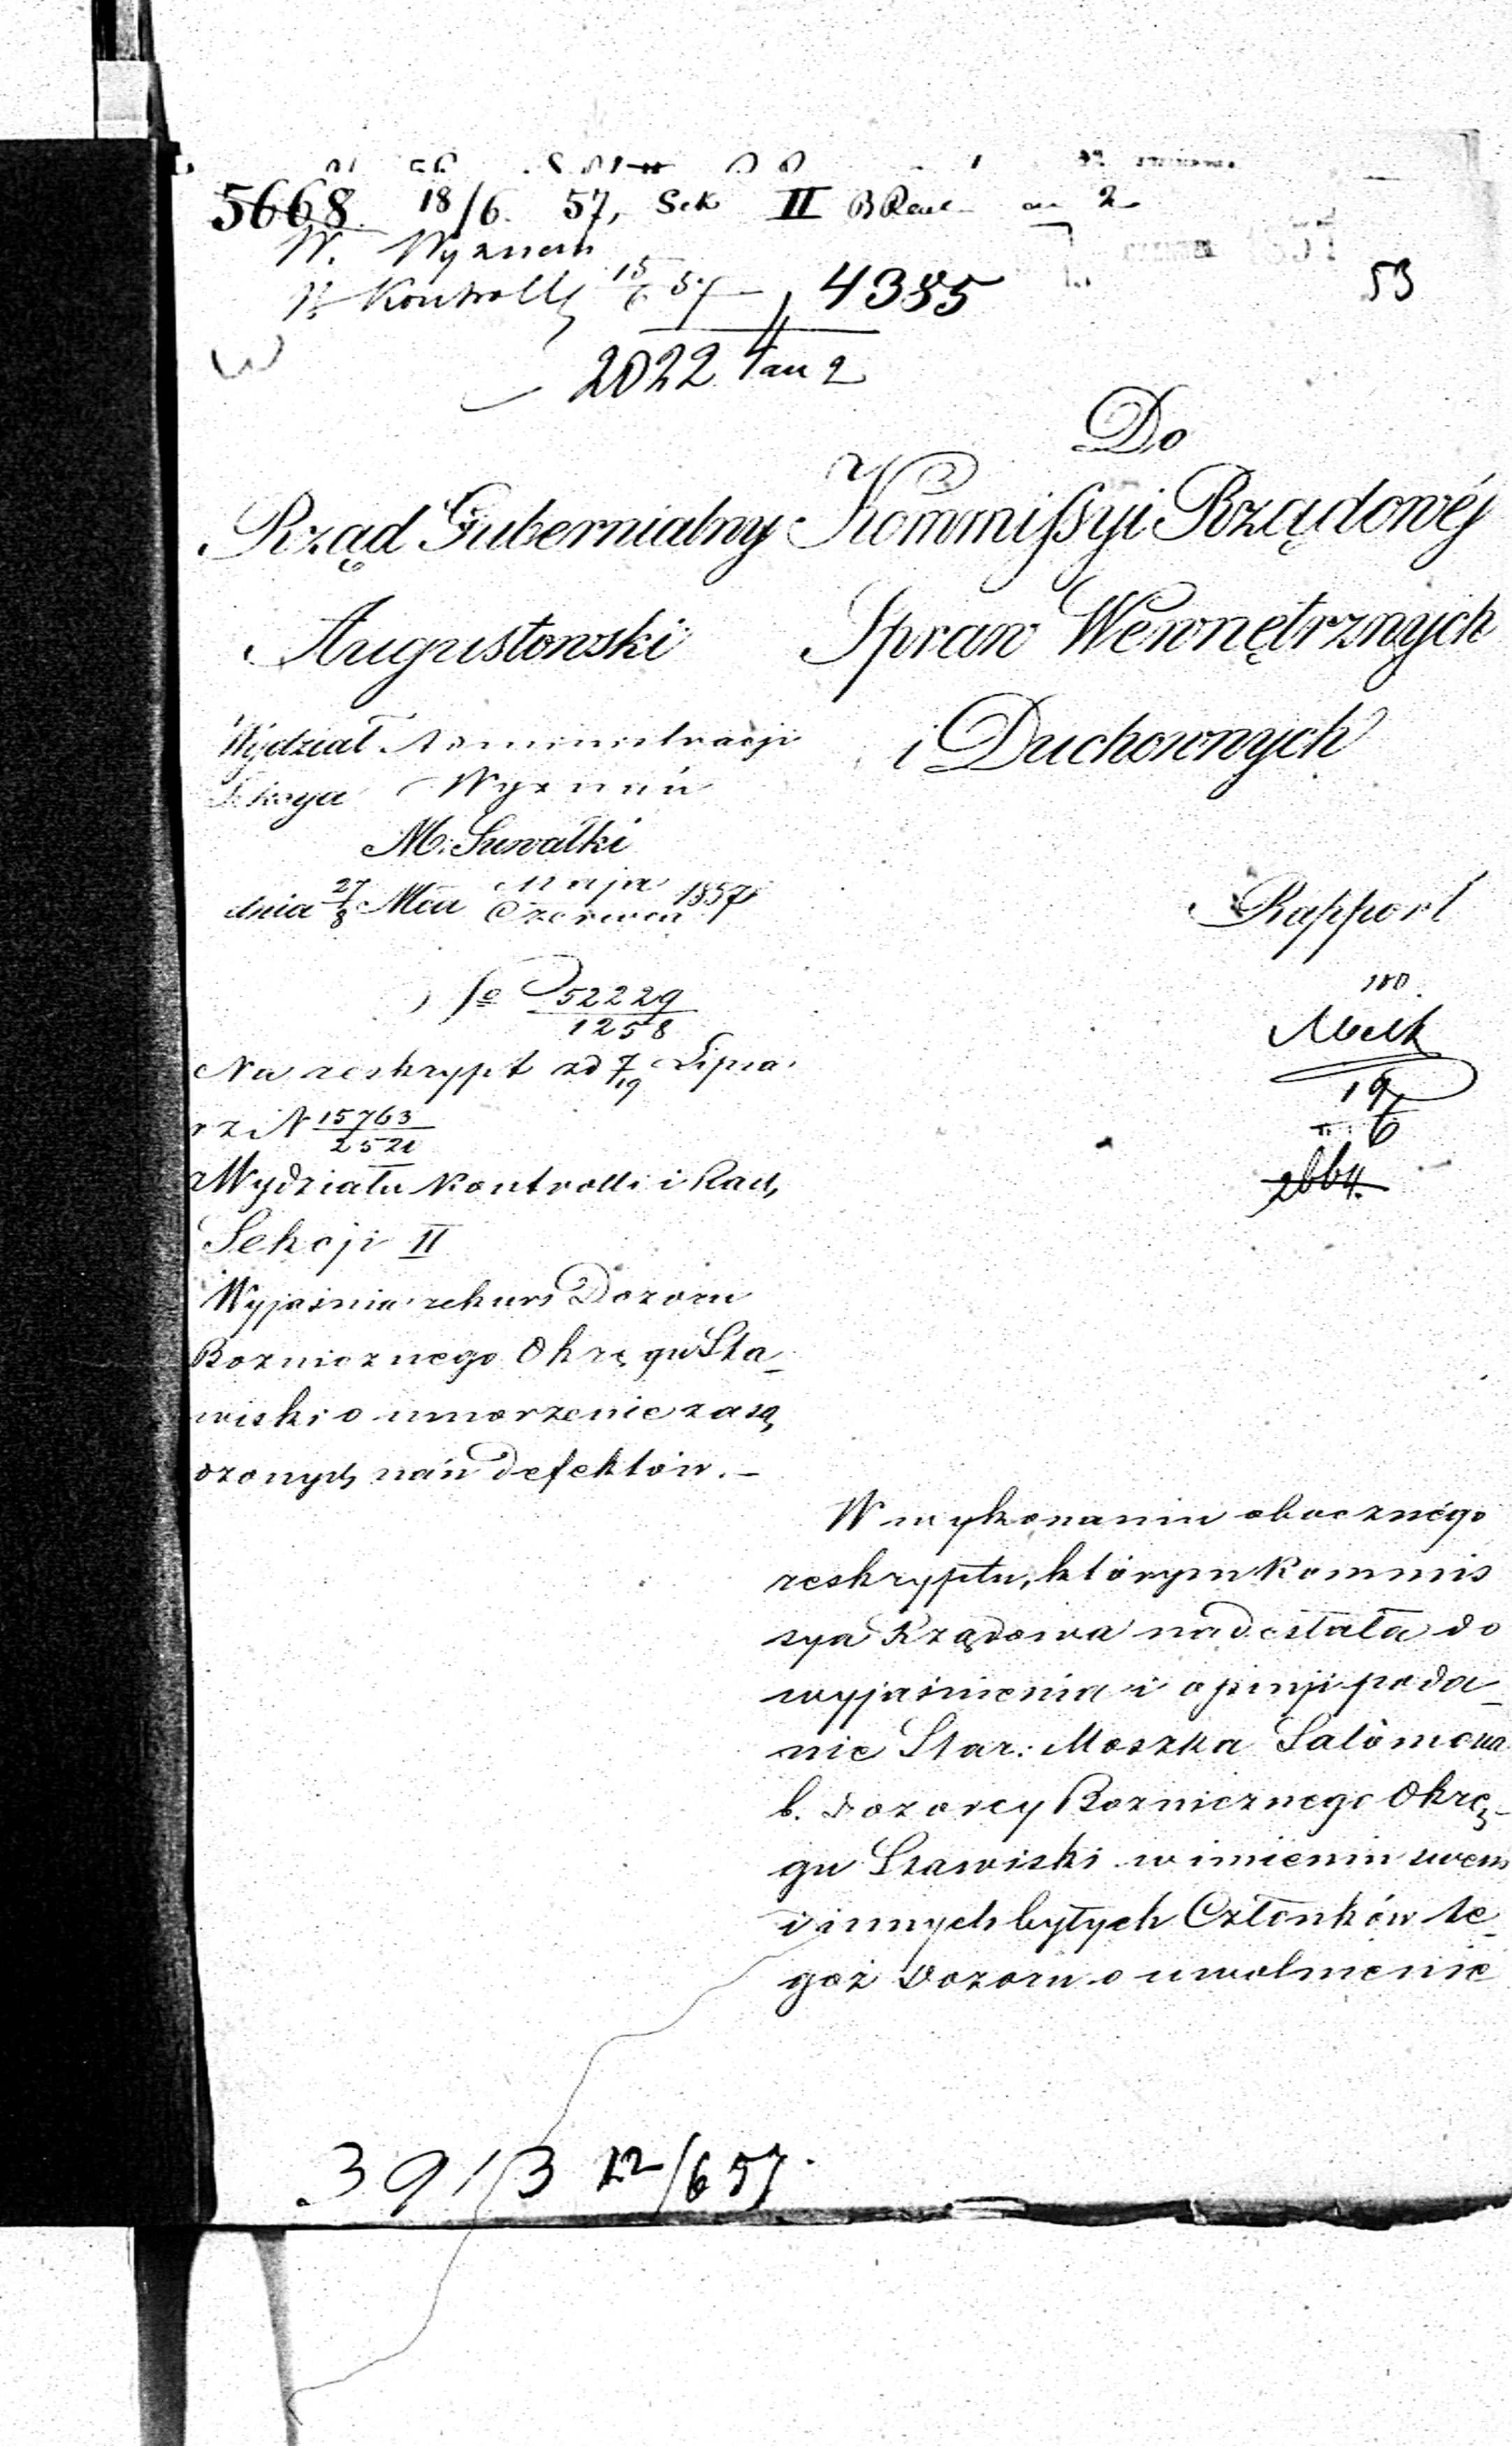 5668. 18/6. 57, Sek II B Rach an 2
W. Wyznań
W. Kontrolli 15/6 57 4385
53
2022 an 2
Do
Rząd Gubernialny
Augustowski
Kommissyi Rządowéj
Spraw Wewnętrznych
i Duchownych
Wydział Administracji
Sekcya Wyznań
M. Suwałki
dnia 27/8 Mca Maja/Czerwca 1857
52229/1258
Rapport
19/6
Na reskrypt zd 7/19 Lipca
r z N 15763/2521
z Wydziału Kontrolli i Rach,
Sekcji II
Wyjaśnia rekurs Dozoru
Bożnicznego Okręgu Sta_
wiski o umorzenie zasą
dzonych nań defektów. –
W wykonaniu obocznégo
reskryptu, którym Kommis
sya Rządowa nadesłała do
wyjaśnienia i opinji poda_
nie Star: Moszka Salomona
b. Dozorcy Bożnicznego Okrę_
gu Stawiski w imieniu swem
i innych byłych Członków te_
goż Dozoru o uwolnienie
3913 12/6 57.